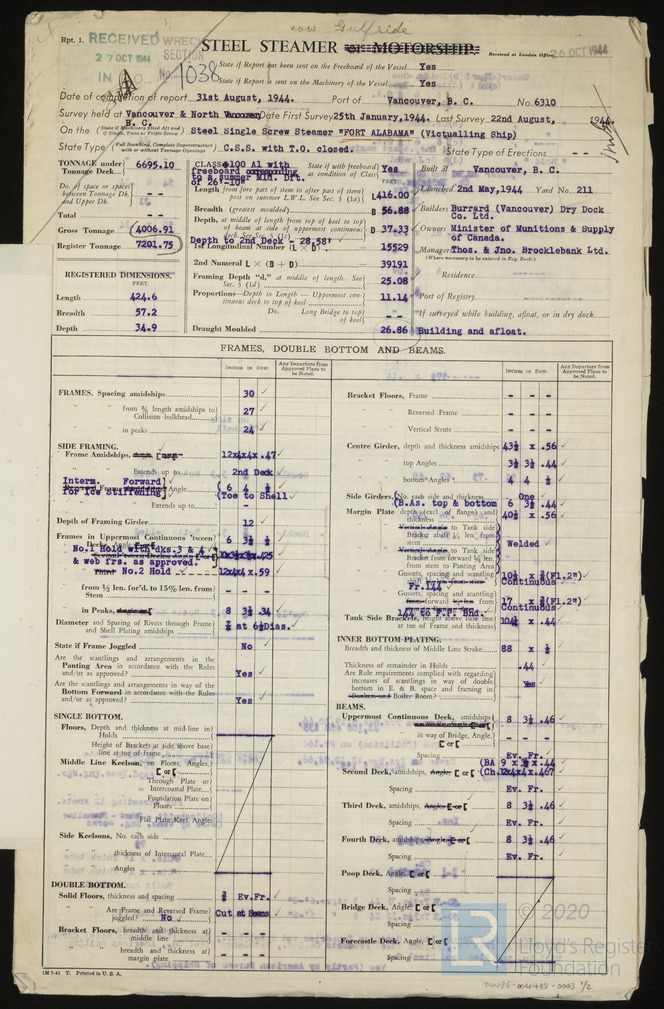 now Gulfside
Rpt. 1.
RECEIVED
27 OCT 1944
IN D.O.
WRECK SECTION
No. 1038
STEEL STEAMER or MOTORSHIP.
Received at London Office 26 OCT 1944
State if Report has been sent on the Freeboard of the Vessel Yes
State if Report is sent on the Machinery of the Vessel Yes
Date of completion of report 31st August, 1944. Port of Vancouver, B. C. No. 6310
Survey held at Vancouver & North Vancouver B. C. Date First Survey 25th January, 1944. Last Survey 22nd August, 1944.
On the (State if Machinery fitted Aft and if Single, Twin or Triple Screw) Steel Single Screw Steamer "FORT ALABAMA" (Victualling Ship)
State Type (Full Scantling, Complete Superstructure with or without Tonnage Openings) C.S.S. with T.O. closed. State Type of Erections -
TONNAGE under Tonnage Deck 6695.10
Do. of space or spaces between Tonnage Dk. and Upper Dk. --
Total --
Gross Tonnage 4006.91
Register Tonnage 7201.75
REGISTERED DIMENSIONS.
FEET.
Length 424.6
Breadth 57.2
Depth 34.9
CLASS +100 A1 with freeboard corresponding to a Summer Mld. Dft. of 26'-10"
State if with freeboard as condition of Class Yes
Length from fore part of stem to after part of stern post on summer L.W.L. See Sec. 3 (1a) L 416.00
Breadth (greatest moulded) B 56.88
Depth, at middle of length from top of keel to top of beam at side of uppermost continuous deck. See Sec. 3 (1c) D 37.33
Depth to 2nd Deck - 28.58'
1st Longitudinal Number (L x D) 15529
2nd Numeral L × (B + D) 39191
Framing Depth "d," at middle of length. See Sec. 3 (1d) 25.08
Proportions—Depth to Length—Uppermost continuous deck to top of keel 11.14
Do. Long Bridge to top of keel --
Draught Moulded 26.86
Built at Vancouver, B. C.
Launched 2nd May, 1944 Yard No. 211
Builders Burrard (Vancouver) Dry Dock Co. Ltd.
Owners Minister of Munitions & Supply of Canada.
Managers Thos. & Jno. Brocklebank Ltd.
(Where necessary to be entered in Reg. Book.)
Residence
Port of Registry
If surveyed while building, afloat, or in dry dock
Building and afloat.
FRAMES, DOUBLE BOTTOM AND BEAMS.
INCHES IN SHIP.
Any Departure from Approved Plans to be Noted.
INCHES IN SHIP.
Any Departure from Approved Plans to be Noted.
FRAMES, Spacing amidships 30
" " from ⅗ length amidships to Collision bulkhead 27
" " in peaks 24
SIDE FRAMING.
Frame Amidships, 12x4x4x.47
" " Extends up to 2nd Deck
Interm. Forward) for Ice Stiffening) Angle (6 4 ½
(Toe to Shell
" " Extends up to -
Depth of Framing Girder 12
Frames in Uppermost Continuous 'tween Decks, 6 3½ ½
No.1 Hold with dks.3 & 4 & web frs. as approved.
No.2 Hold 12x4x4 x.59
" from ½ len. for'd. to 15% len. from Stem - - -
" in Peaks, 8 3½ .34
Diameter and Spacing of Rivets through Frame and Shell Plating amidships ⅞ at 6½ Dias.
State if Frame Joggled No
Are the scantlings and arrangements in the Panting Area in accordance with the Rules and/or as approved? Yes
Are the scantlings and arrangements in way of the Bottom Forward in accordance with the Rules and/or as approved? Yes
SINGLE BOTTOM.
Floors, Depth and thickness at mid-line in Holds
Height of Brackets at side above base line at toe of frame
Middle Line Keelson, on Floors, Angles, [ or [
" " Through Plate or Intercostal Plate
" " Foundation Plate on Floors
" " Flat Plate Keel Angles
Side Keelsons, No. each side
" " thickness of Intercostal Plate
" " Angles
DOUBLE BOTTOM.
Solid Floors, thickness and spacing Ev.Fr.
" " Are Frame and Reversed Frame joggled? No Cut at Seams
Bracket Floors, breadth and thickness at middle line - - -
" " breadth and thickness at margin plate - - -
Bracket Floors, Frame - - -
" " Reversed Frame - - -
" " Vertical Struts - - -
Centre Girder, depth and thickness amidships 43½ x .56
" " top Angles 3½ 3½ .44
" " bottom Angles 4 4 ½
Side Girders, No. each side and thickness One
(B.As. top & bottom 6 3½ .44
Margin Plate depth (excl. of flange) and thickness 40½ x .56
" " Vertical Angle to Tank side Bracket abaft ¼ len. from stem
" " Vertical Angle to Tank side Bracket from forward ¼ len. from stem to Panting Area
Welded
" " Gussets, spacing and scantling Fr.144 Continuous
" " Gussets, spacing and scantling 144 to F.P. Bhd. Continuous
Tank Side Brackets, height above base line at toe of Frame and thickness 104½ x .44
INNER BOTTOM PLATING.
Breadth and thickness of Middle Line Strake 88 x ½
Thickness of remainder in Holds .44
Are Rule requirements complied with regarding increases of scantlings in way of double bottom in E. & B. space and framing in Boiler Room? Yes
BEAMS.
Uppermost Continuous Deck, amidships 8 3½ .46
" " in way of Bridge, Angle, [ or [ -
" " Spacing Ev. Fr.
Second Deck, amidships, Angle, [ or [ (BA 9 x 3½ x .44
(Ch.12x4x4x.467
" " Spacing Ev. Fr.
Third Deck, amidships, Angle, [ or [ 8 3½ .46
" " Spacing Ev. Fr.
Fourth Deck, amidships, Angle, [ or [ 8 3½ .46
" " Spacing Ev. Fr.
Poop Deck, Angle, [ or [
" " Spacing
Bridge Deck, Angle, [ or [
" " Spacing
Forecastle Deck, Angle, [ or [
" " Spacing
1M 7-41 T. Printed in U. S. A.
© 2020
Lloyd's Register Foundation
004486-004498-0003 1/2